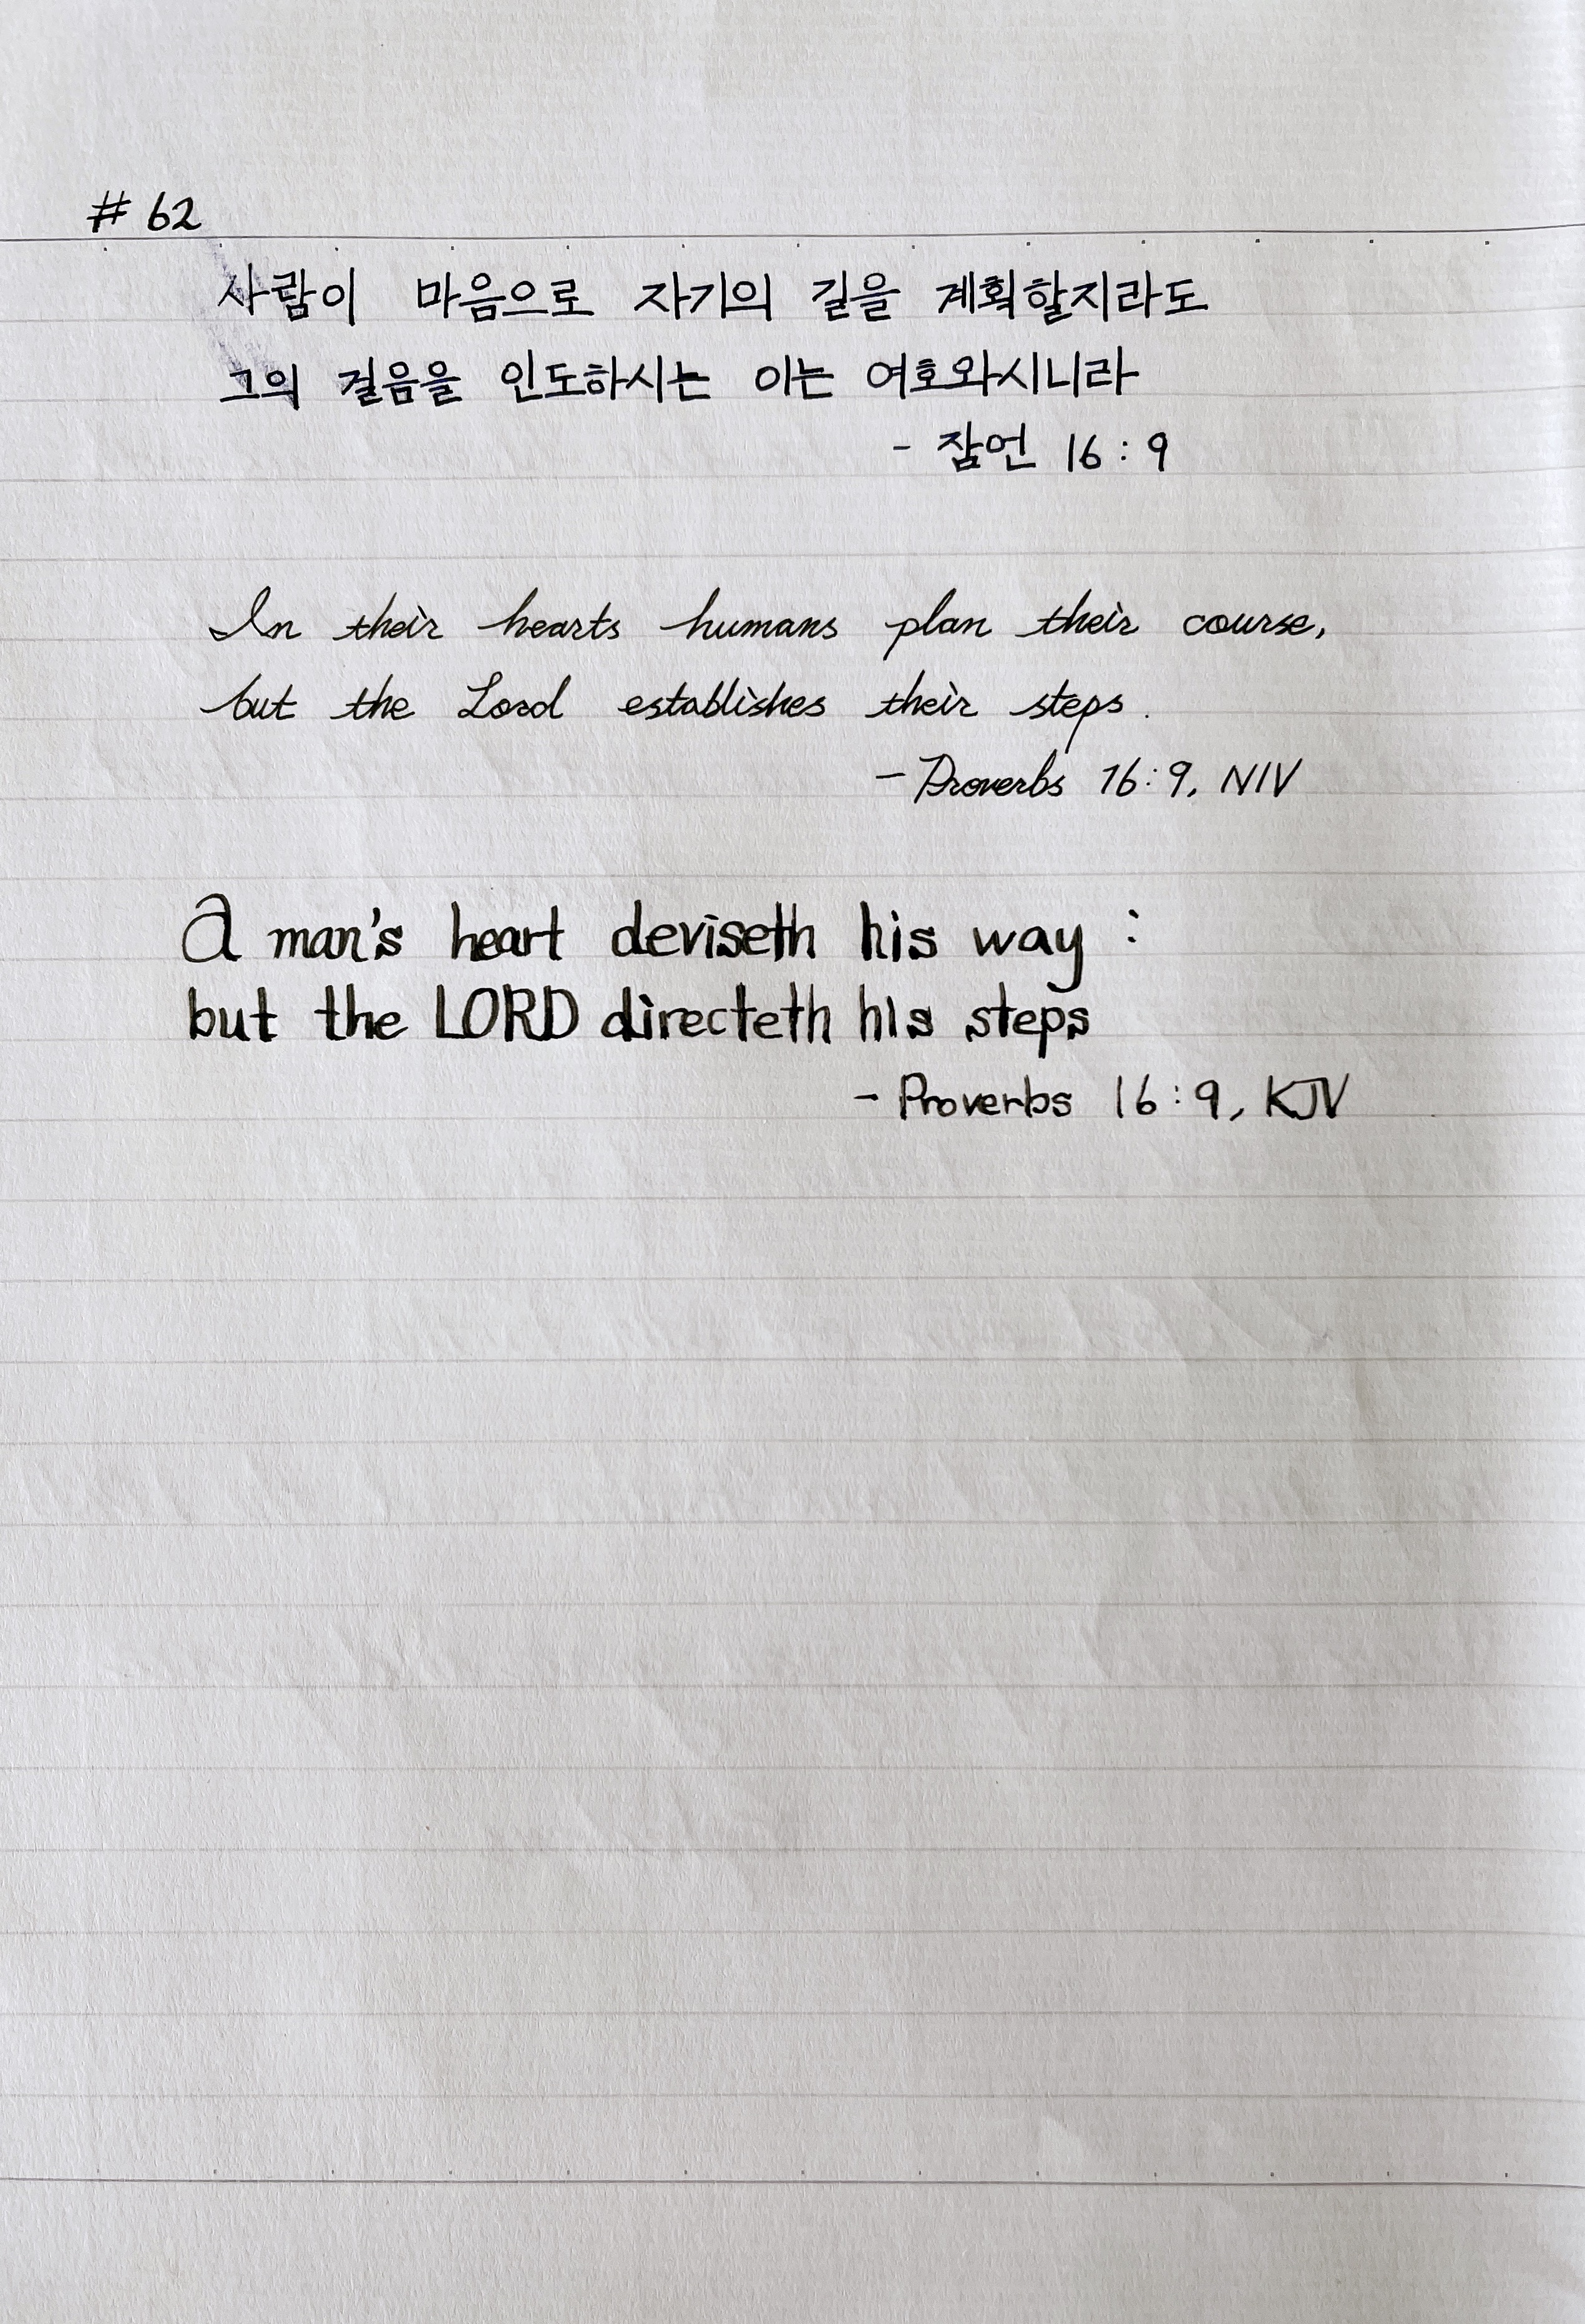 # 62
사람이 마음으로 자기의 길을 계획할지라도
그의 걸음을 인도하시는 이는 여호와시니라
- 잠언 16 : 9
In their hearts humans plan their course,
but the Lord establishes their steps.
- Proverbs 16:9, NIV
A man's heart deviseth his way :
but the LORD directeth his steps
- Proverbs 16:9, KJV